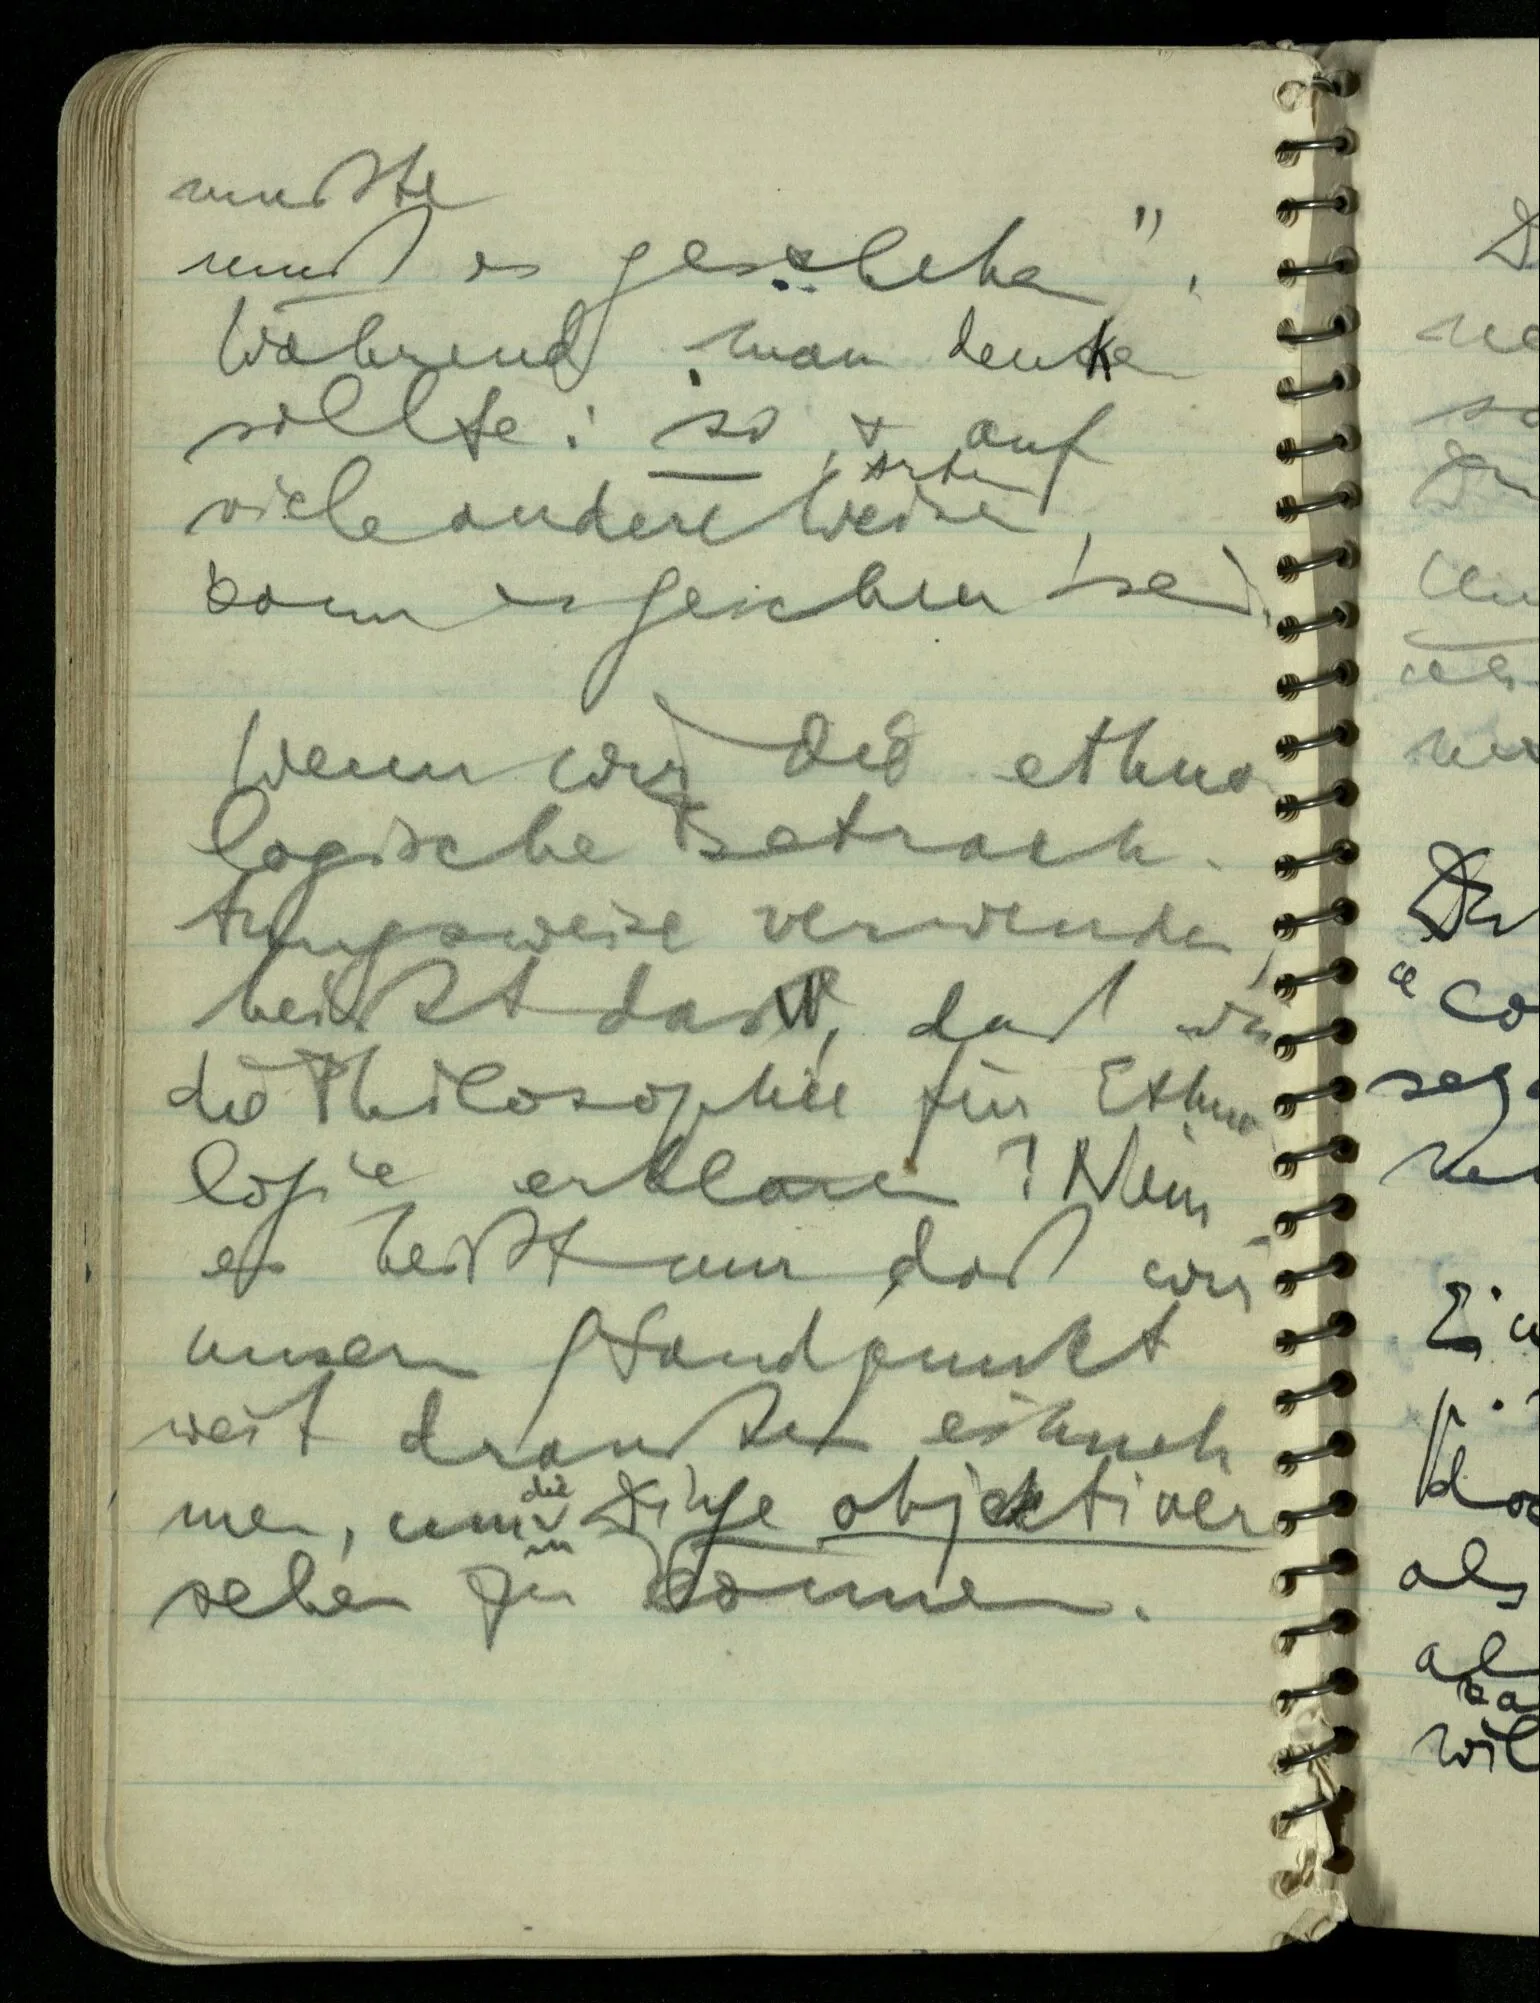 mußte
muß es geschehen".
Während man denken
sollte: so, & auf
Arten
viele andere Weisen,
kann es geschehen sein.
Wenn wir die ethno
logische Betrach-
tungsweise verwenden,
heißt das, daß wir
die Philosophie für Ethno
logie erklären? Nein
es heißt nur daß wir
unsern Standpunkt
weit draußen einneh
die
men, um Dinge objektiver
sehen zu können.
Der
"Co
Ei
als